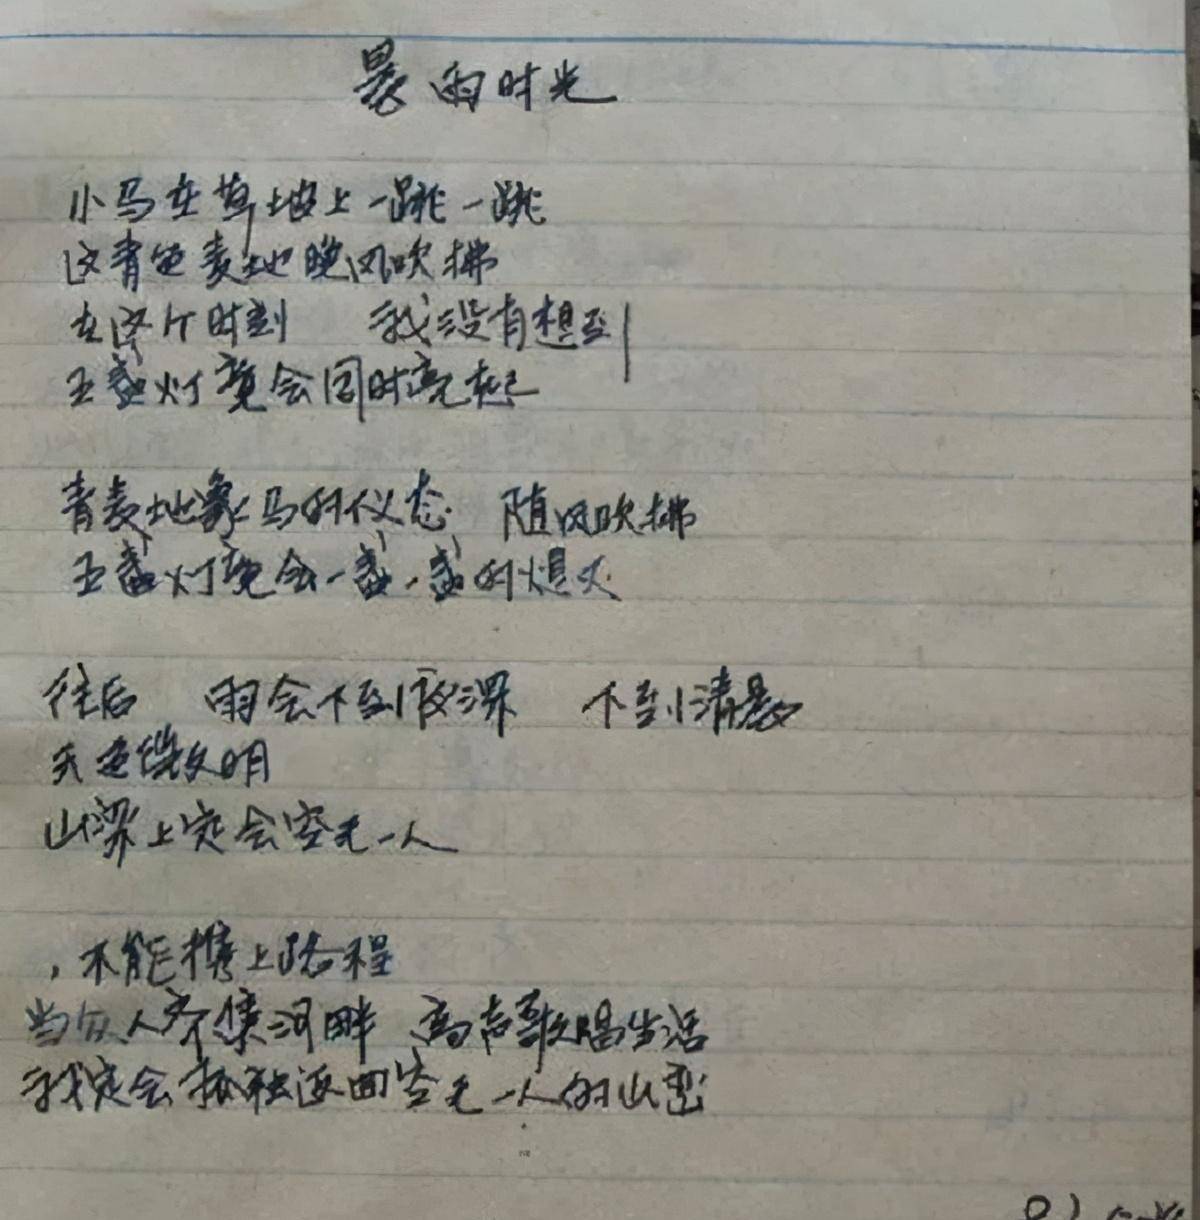 暴雨时光
小马在草坡上一跳一跳
这青色麦地晚风吹拂
在这个时刻 我没有想到
五盏灯竟会同时亮起
青麦地象马的仪态 随风吹拂
五盏灯竟会一盏一盏的熄灭
往后 雨会下到深夜 下到清晨
天色微明
山梁上定会空无一人
不能携上路程
当众人齐集河畔 高声歌唱生活
我定会孤独返回空无一人的山峦